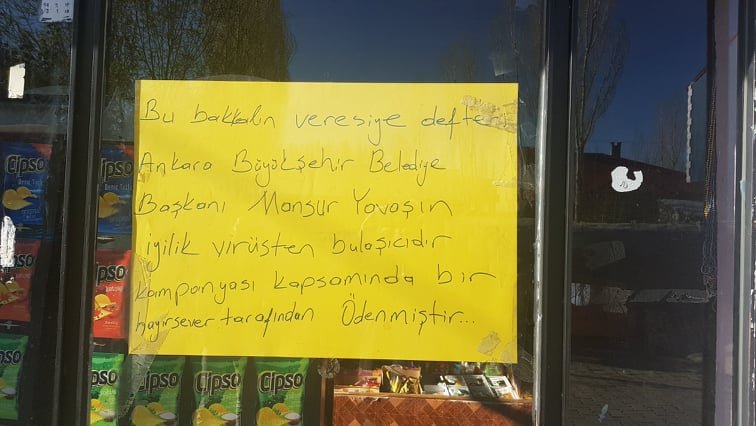 Bu bakkalın veresiye defteri
Ankara Büyükşehir Belediye
Başkanı Mansur Yavaşın
iyilik virüsten bulaşıcıdır
kampanyası kapsamında bir
hayırsever tarafından Ödenmiştir...
Cipso
Cipso
PSO
Cipso
Cipso
Cipso